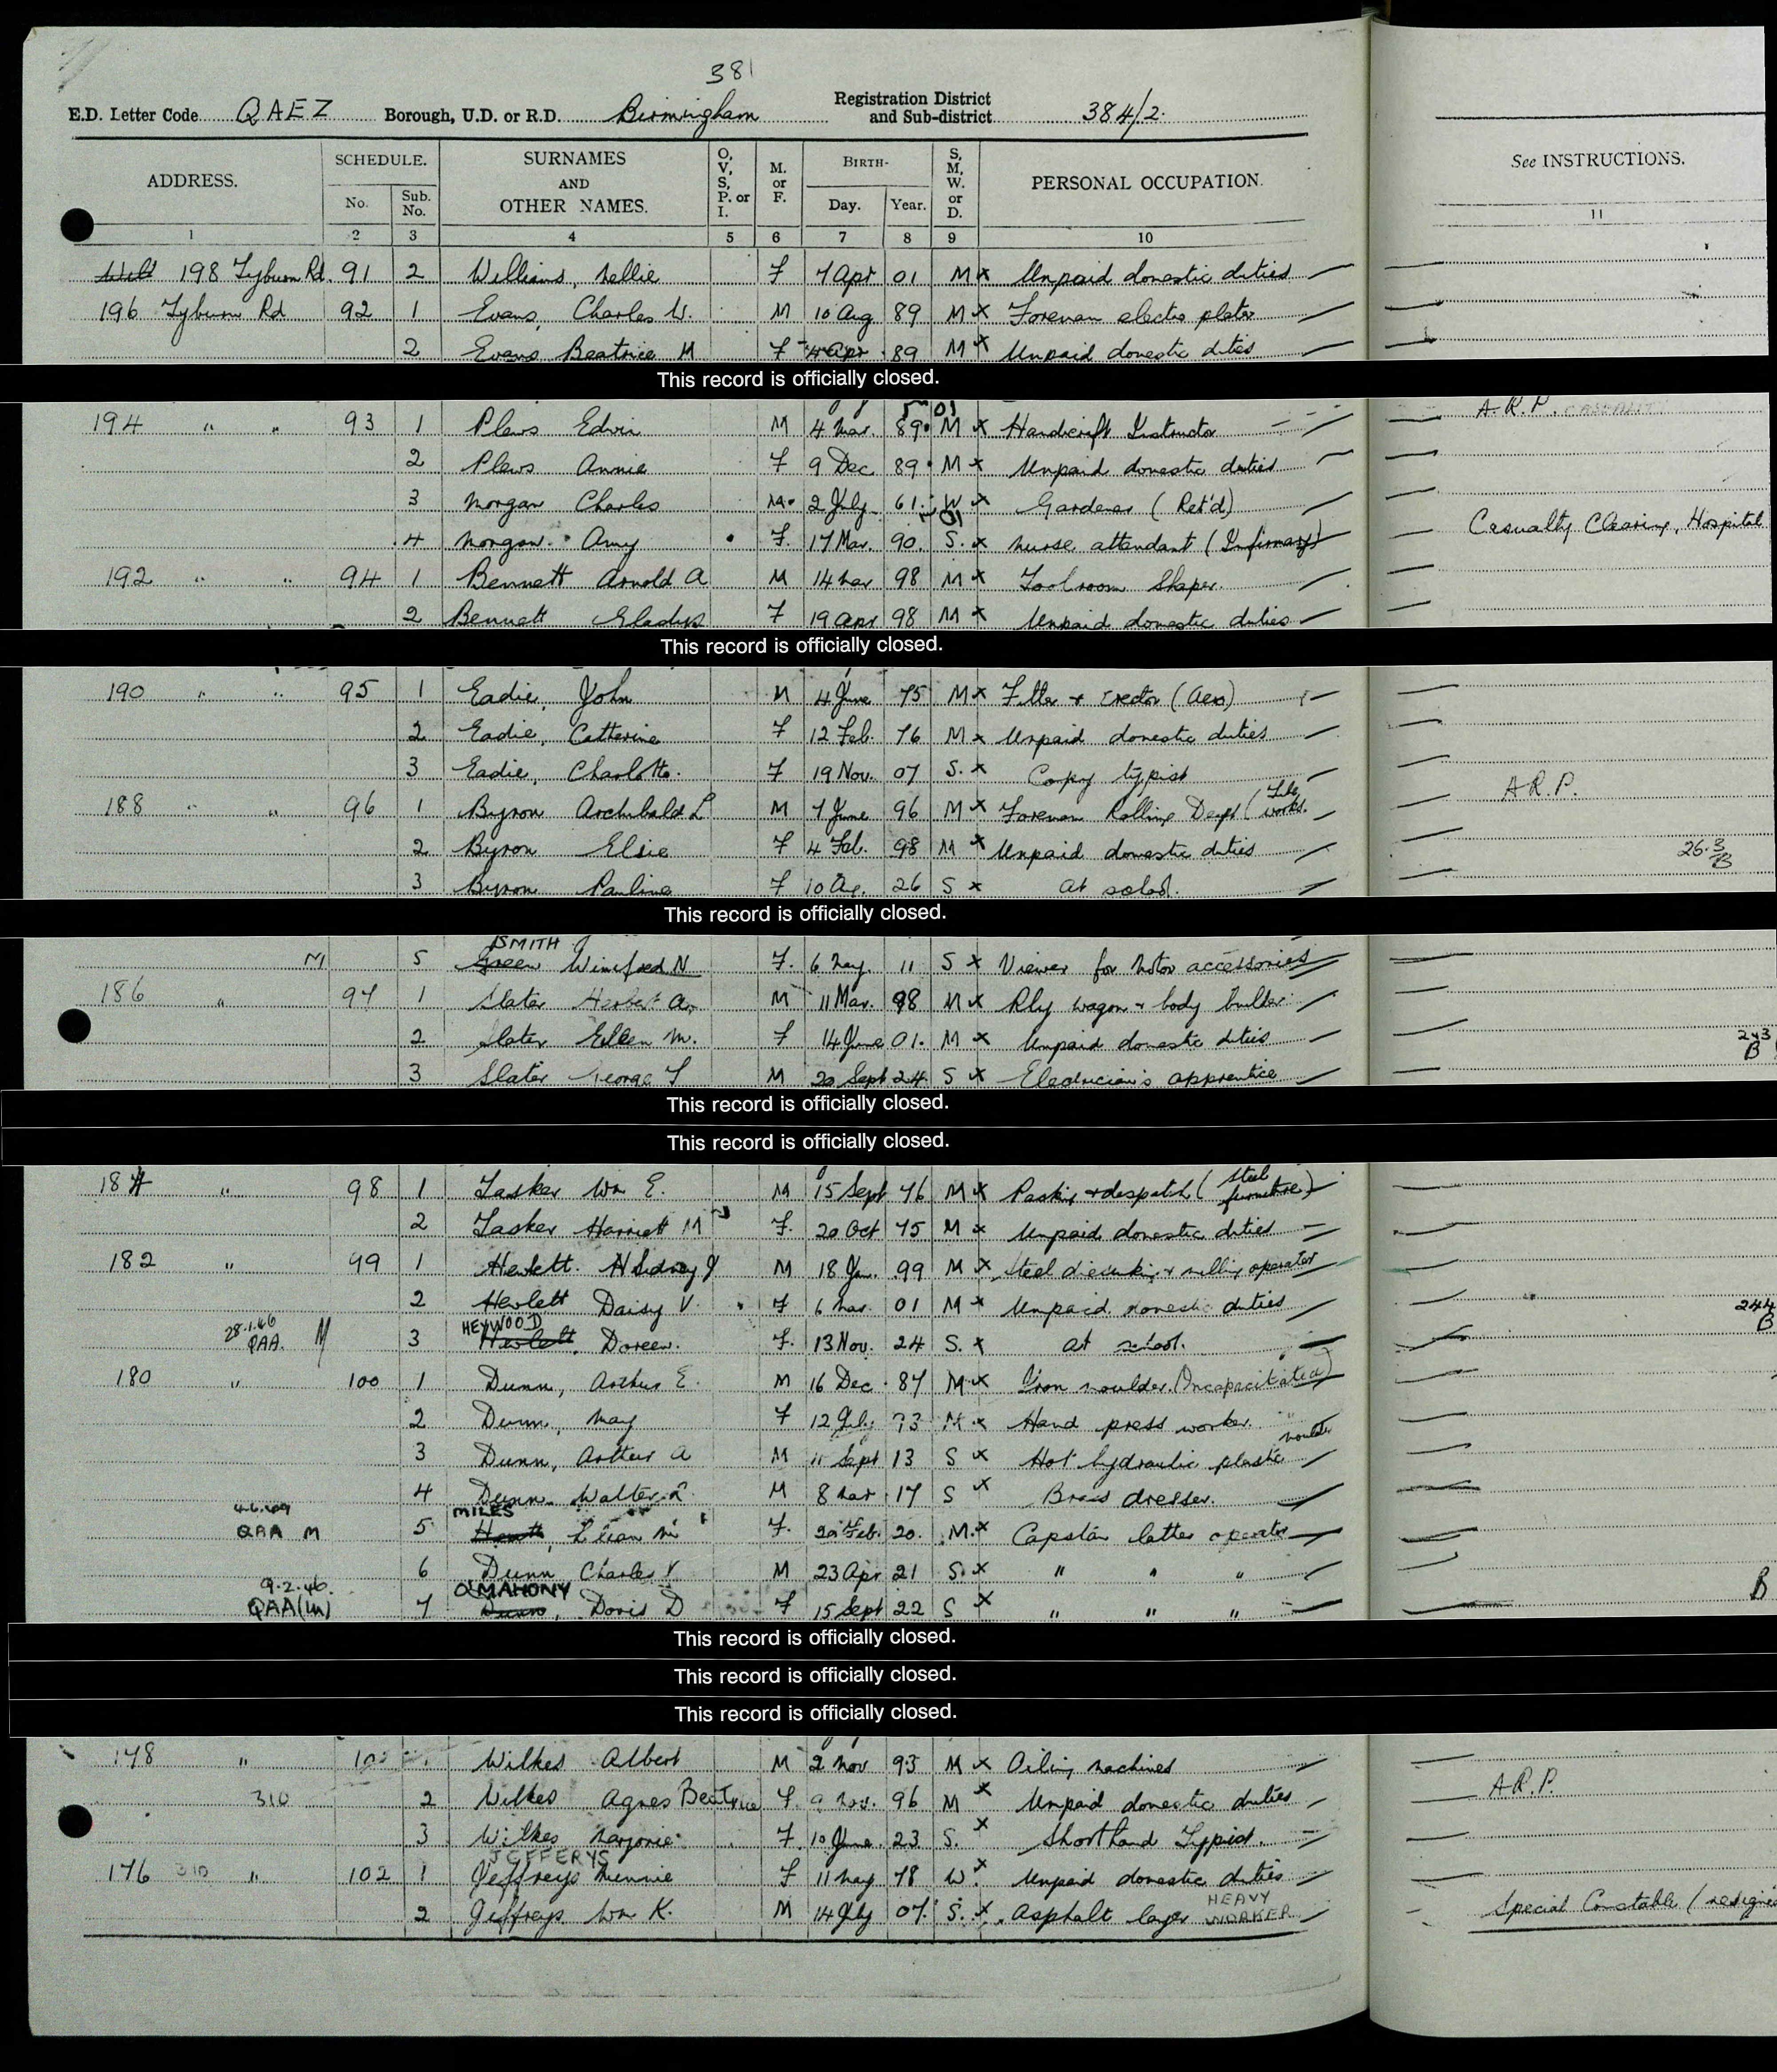 381
E.D. Letter Code QAEZ Borough, U.D. or R.D. Birmingham Registration District and Sub-district 384/2.
ADDRESS. SCHEDULE. No. Sub. No. SURNAMES AND OTHER NAMES. O, V, S, P. or I. M. or F. BIRTH- Day. Year. S, M, W. or D. PERSONAL OCCUPATION. See INSTRUCTIONS.
1 2 3 4 5 6 7 8 9 10 11
198 Tyburn Rd. 91 2 Williams, Nellie F 7 Apr 01 M x Unpaid domestic duties
196 Tyburn Rd 92 1 Evans, Charles W. M 10 Aug 89 M x Foreman electro plater
2 Evans Beatrice M F 4 Apr 89 M x Unpaid domestic duties
This record is officially closed.
194 " " 93 1 Plews Edwin M 4 Mar. 89 M x Handicraft Instructor A.R.P.
2 Plews Annie F 9 Dec 89 M x Unpaid domestic duties
3 Morgan Charles M 2 July 61 W x Gardener (Ret'd)
4 Morgan Amy F. 17 Mar. 90 S. x Nurse attendant (Infirmary) Casualty Clearing, Hospital
192 " " 94 1 Bennett Arnold A M 14 Mar 98 M x Toolroom Shaper.
2 Bennett Gladys F 19 Apr 98 M x Unpaid domestic duties
This record is officially closed.
190 " " 95 1 Eadie, John M 4 June 75 M x Fitter + Erector (Aero)
2 Eadie, Catherine F 12 Feb. 76 M x Unpaid domestic duties
3 Eadie, Charlotte. F 19 Nov. 07 S. x Copy typist
188 " " 96 1 Byron Archibald L M 7 June 96 M x Foreman Rolling Dept (Tube works. A.R.P.
2 Byron Elsie F 4 Feb. 98 M x Unpaid domestic duties
26.3 B
3 Byron Pauline F 10 26 S x At school.
This record is officially closed.
SMITH
M 5 Green Winifred N F. 6 May. 11 S x Viewer for Motor accessories
186 " 97 1 Slater Herbert A. M 11 Mar. 98 M x Rly wagon + body builder
2 Slater Eileen M. F 14 June 01. M x Unpaid domestic duties
243 B
3 Slater George T M 20 Sept 24. S x Electrician's apprentice
This record is officially closed.
This record is officially closed.
184 " 98 1 Tasker Wm E. M 15 Sept 76 M x Packing + despatch (steel furniture)
2 Tasker Harriett M F. 20 Oct 75 M x Unpaid domestic duties
182 " 99 1 Hewlett. H Sidney J M 18 Jan. 99 M x Steel diesinking + milling operator
2 Hewlett Daisy V. F 6 Mar 01 M x Unpaid domestic duties
244 B
28.1.46 HEYWOOD
QAA. M 3 Hewlett, Doreen. F. 13 Nov. 24 S. x At school.
180 " 100 1 Dunn, Arthur E. M 16 Dec 87 M x Iron moulder (Incapacitated)
2 Dunn, May F 12 93 M x Hand press worker.
3 Dunn, Arthur A M 11 Sept 13 S x Hot hydraulic plastic moulder
4 Dunn Walter M 8 Mar 17 S x Brass dresser.
MILES
QAA M 5 Lilian M F. 20 Feb. 20. M. x Capstan lathe operator
6 Dunn Charles V M 23 Apr 21 S. x " " "
9.2.46. O'MAHONY
QAA 7 Dunn, Doris D F 15 Sept 22 S x " " "
B
This record is officially closed.
This record is officially closed.
This record is officially closed.
178 " Wilkes Albert M 2 Nov 93 M x Oiling machines A.R.P.
310 2 Wilkes Agnes Beatrice F 9 Nov. 96 M x Unpaid domestic duties
3 Wilkes Marjorie F. 10 June 23 S. x Shorthand Typist.
JEFFERYS
176 310 " 102 1 Jeffreys Minnie F 11 May 78 W. x Unpaid domestic duties
2 Jeffreys Wm K. M 14 July 07 S. x Asphalt layer HEAVY WORKER Special Constable